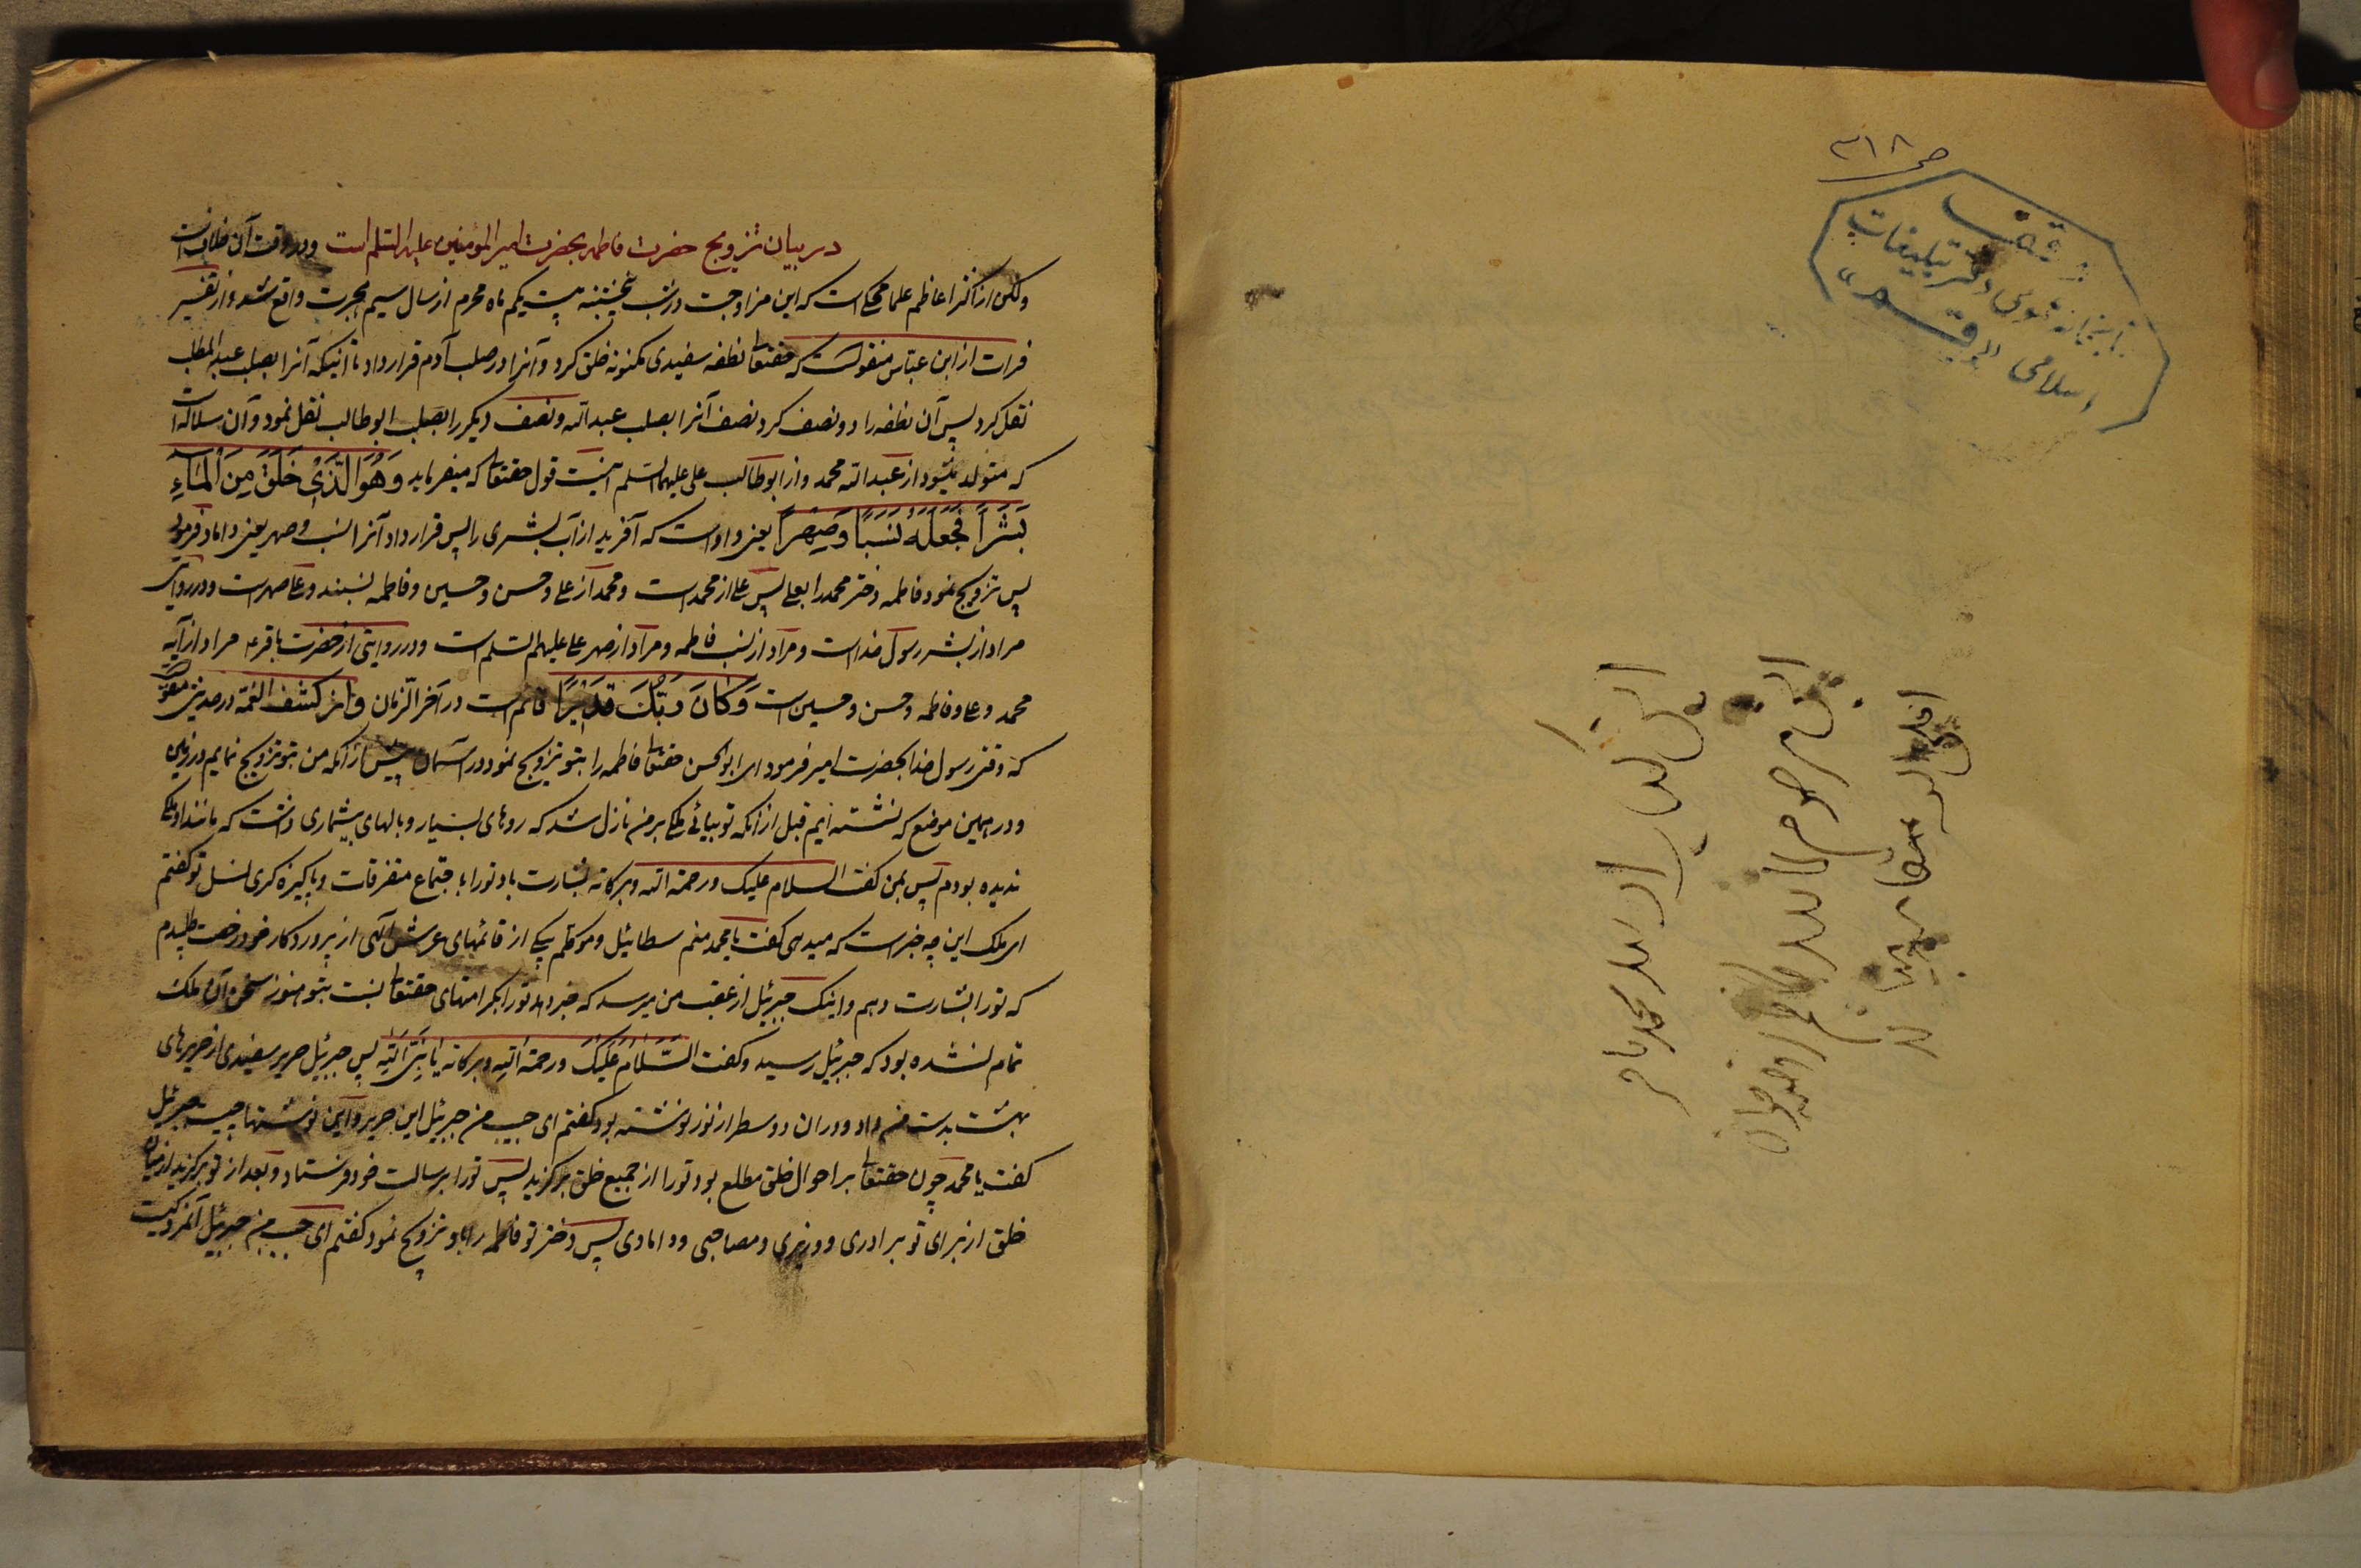 ص ۳۱۸
وقف
کتابخانه عمومی دفتر تبلیغات
اسلامی "قم"
این کتاب از
مرحوم
در بیان تزویج حضرت فاطمه بحضرت امیر المؤمنین علیهما السلم است و در وقت آن خلافست
ولکن از اکثر اعاظم علما محکی است که این مزاوجت در شب پنجشنبه بیست یکم ماه محرم از سال سیم هجرت واقع شد و از تفسیر
فرات از ابن عباس منقولست که حقتعالی نطفه سفیدی مکنونه خلق کرد و آنرا در صلب آدم قرار داد تا اینکه آنرا بصلب عبد المطلب
نقل کرد پس آن نطفه را دو نصف کرد نصف آنرا بصلب عبد الله و نصف دیگر را بصلب ابو طالب نقل نمود و آن سلاله است
که متولد میشود از عبد الله محمد و از ابو طالب علی علیهما السلم اینست قول حقتعالی که میفرماید وَهُوَ الَّذی خَلَقَ مِنَ الْمَاءِ
بَشَراً فَجَعَلَهُ نَسَباً وَصِهْراً یعنی و او است که آفرید از آب بشری را پس قرار داد آنرا نسب و صهر یعنی داماد فرمود
پس تزویج نمود فاطمه دختر محمد را بعلی پس علی از محمد است و محمد از علی و حسن و حسین و فاطمه نسبند و علی صهر است و در روایتی
مراد از بشر رسول خداست و مراد از نسب فاطمه و مراد از صهر علی علیهم السلم است و در روایتی از حضرت باقر ع مراد از آیه
محمد و علی و فاطمه و حسن و حسین است وَکَانَ رَبُّکَ قَدیراً قائم است در آخر الزمان و از کشف الغمه در حدیثی
که وقتی رسول خدا بحضرت امیر فرمود ای ابو الحسن حقتعالی فاطمه را بتو تزویج نمود در آسمان پیش از آنکه من بتو تزویج نمایم در زمین
و در همین موضع که نشسته‌ایم قبل از آنکه تو بیائی ملکی بر من نازل شد که روهای بسیار و بالهای بیشماری داشت که مانند او ملکی
ندیده بودم پس بمن گفت السلام علیک و رحمة الله و برکاته بشارت باد تو را باجتماع متفرقات و پاکیزه کری نسل تو گفتم
ای ملک این چه خبر است که میدهی گفت یا محمد منم سطائیل و موکلم بیکی از قائمهای عرش الهی از پروردکار خود رخصت طلبیدم
که تو را بشارت دهم و اینک جبرئیل از عقب من میرسد که خبر دهد تو را بکرامتهای حقتعالی نسبت بتو هنوز سخن آن ملک
تمام نشده بود که جبرئیل رسید و گفت السَّلامُ عَلَیْکَ و رحمة الله و برکاته یا نَبِیَّ الله پس جبرئیل حریر سفیدی از حریرهای
بهشت بدست من داد و در ان دو سطر از نور نوشته بود گفتم ای حبیب من جبرئیل این حریر و این نوشتها چیست جبرئیل
گفت یا محمد چون حقتعالی بر احوال خلق مطلع بود تو را از جمیع خلق برگزید پس تو را برسالت خود فرستاد و بعد از تو برگزید از میان
خلق از برای تو برادری و وزیری و مصاحبی و دامادی پس دختر تو فاطمه را باو تزویج نمود گفتم ای حبیب من جبرئیل آنمرد کیست